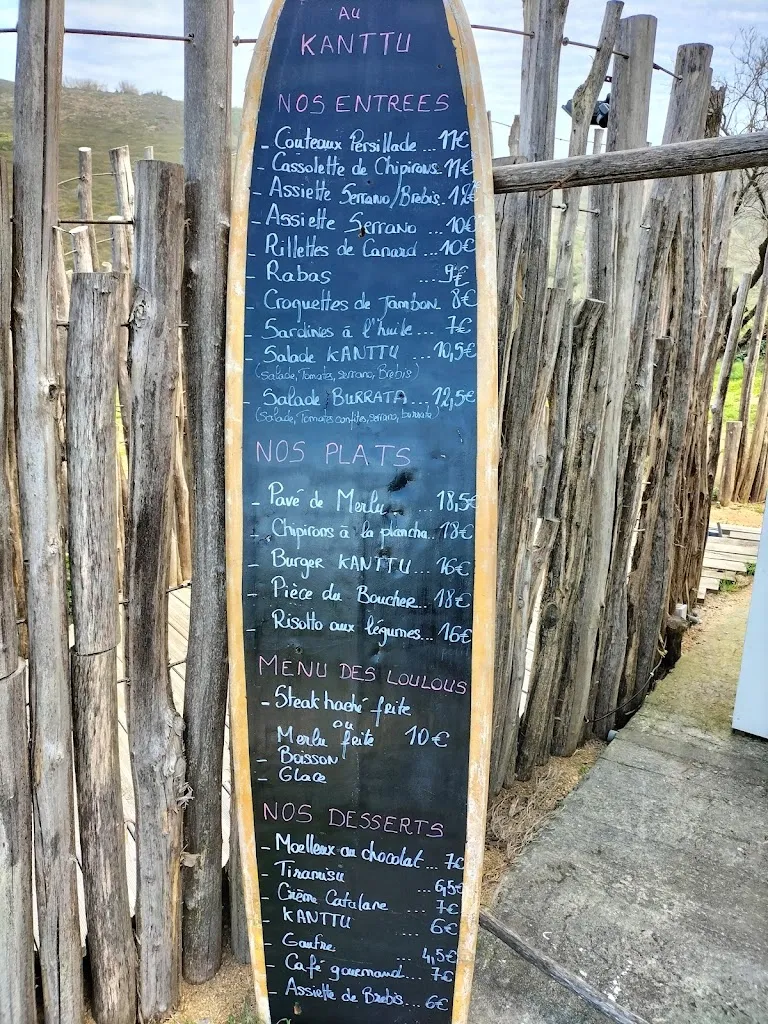 AU
KANTTU
NOS ENTREES
- Couteaux Persillade ... 11€
- Cassolette de Chipirons 11€
- Assiette Serrano/Brebis. 12€
- Assiette Serrano ... 10€
- Rillettes de Canard ... 10€
- Rabas ... 9€
- Croquettes de Jambon 8€
- Sardines à l'huile ... 7€
- Salade KANTTU ... 10,5€
(Salade, Tomates, serrano, Brebis)
- Salade BURRATA ... 12,5€
(Salade, Tomates confites, serrano, burrata)
NOS PLATS
- Pavé de Merlu ... 18,5€
- Chipirons à la plancha.. 18€
- Burger KANTTU ... 16€
- Pièce du Boucher... 18€
- Risotto aux légumes... 16€
MENU DES LOULOUS
- Steak haché frite
ou
Merlu frite 10€
- Boisson
- Glace
NOS DESSERTS
- Moelleux au chocolat ... 7€
- Tiramisu ... 6,5€
- Crème Catalane .... 7€
- KANTTU ... 6€
- Gaufre ... 4,5€
- Café gourmand.... 7€
- Assiette de Brebis... 6€